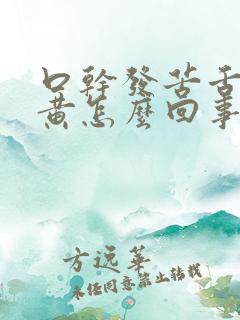 口幹發苦舌
黄怎麼回事
方远華
未经同意禁止转载